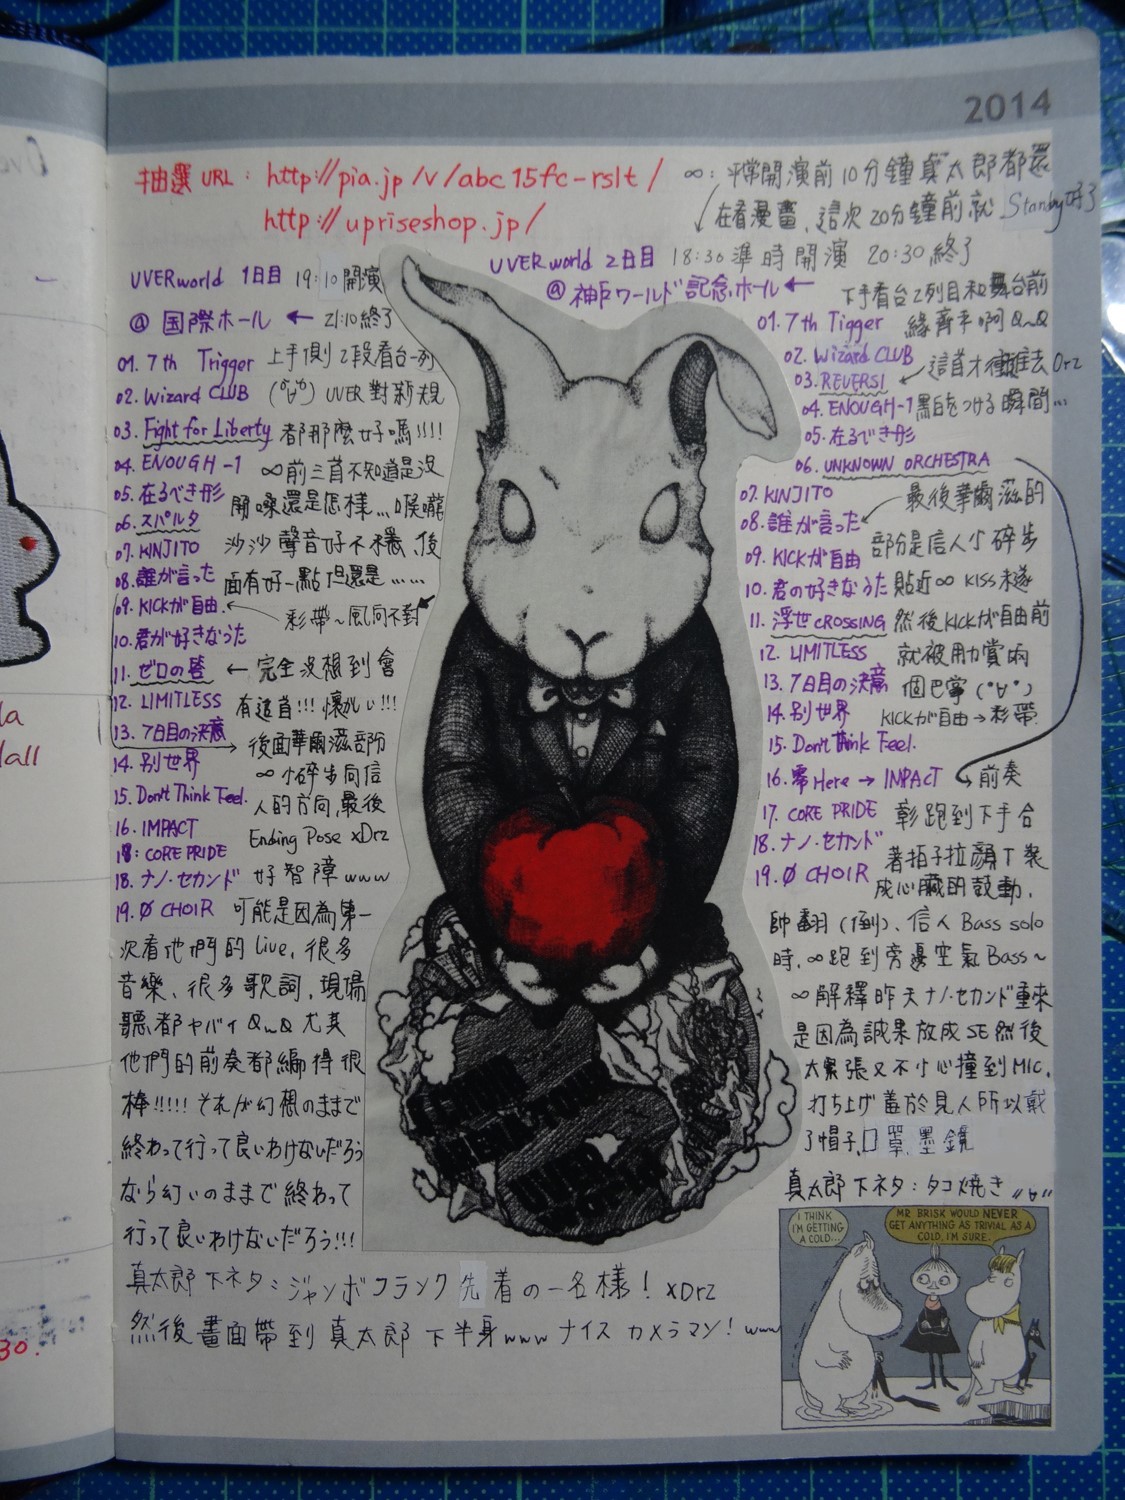 2014
抽選 URL : http://pia.jp/v/abc15fc-rslt/
http://upriseshop.jp/
∞: 平常開演前10分鐘真太郎都還
在看漫畫, 這次20分鐘前就 Standby好了
UVERworld 1日目 19:10開演
@ 国際ホール ← 21:10終了
01. 7th Trigger 上手側2段看台一列
02. Wizard CLUB UVER 對新規
03. Fight for Liberty 都那麼好嗎!!!!
04. ENOUGH-1 ∞前三首不知道是沒
05. 在るべき形 開嗓還是怎樣... 喉嚨
06. スパルタ
07. KINJITO 沙沙聲音好不穩, 後
08. 誰が言った 面有好一點但還是......
09. KICKが自由. ← 彩帶~風向不對
10. 君が好きなうた
11. ゼロの答 ← 完全沒想到會
12. LIMITLESS 有這首!!! 懷かしい!!!
13. 7日目の決意 → 後面華爾滋部份
14. 別世界 ∞小碎步向信
15. Don't Think Feel. 人的方向, 最後
16. IMPACT Ending Pose xDrz
18: CORE PRIDE
18. ナノ・セカンド 好智障www
19. Ø CHOIR 可能是因為第一
次看他們的 live, 很多
音樂、很多歌詞, 現場
聽都ヤバイ QwQ 尤其
他們的前奏都編得很
棒!!!!! それが幻想のままで
終わって行って良いわけないだろう
なら幻いのままで終わって
行って良いわけないだろう!!!
真太郎下ネタ: ジャンボフランク 先着の一名様! xDrz
然後畫面帶到真太郎下半身www ナイスカメラマン! www
UVERworld 2日目 18:30準時開演 20:30終了
@ 神戸ワールド記念ホール ← 下手看台2列目和舞台前
01. 7th Tigger 緣齊平啊 QAQ
02. Wizard CLUB
03. REVERSI ← 這首才衝進去 Orz
04. ENOUGH-1 黑白をつける瞬間...
05. 在るべき形
06. UNKNOWN ORCHESTRA
07. KINJITO 最後華爾滋的
08. 誰が言った ← 部分是信人小碎步
09. KICKが自由
10. 君の好きなうた 貼近∞ KISS未遂
11. 浮世CROSSING 然後KICKが自由前
12. LIMITLESS 就被用力賞兩
13. 7日目の決意 個巴掌
14. 別世界 KICKが自由→彩帶
15. Don't Think Feel.
16. 零Here → IMPACT ← 前奏
17. CORE PRIDE 彰跑到下手合
18. ナノ・セカンド 著拍子拉顏T裝
19. Ø CHOIR 成心臟的鼓動,
帥翻(倒)、信人 Bass solo
時, ∞跑到旁邊空氣Bass~
∞解釋昨天ナノ・セカンド重來
是因為誠果放成SE然後
太緊張又不小心撞到MIC.
打ち上げ羞於見人所以戴
了帽子,口罩,墨鏡
真太郎下ネタ: タコ焼き
I THINK
I'M GETTING
A COLD...
MR BRISK WOULD NEVER
GET ANYTHING AS TRIVIAL AS A
COLD, I'M SURE.
la
all
30.